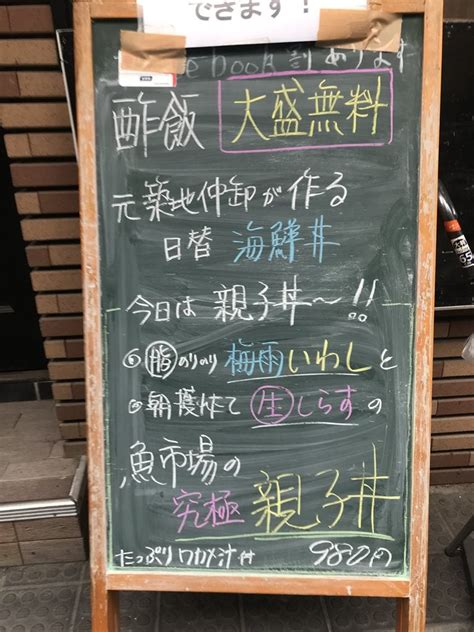 できます!
book 割 あります
酢飯 大盛無料
元築地仲卸が作る
日替 海鮮丼
今日は 親子丼〜!!
①脂のりのり 梅雨いわしと
②朝獲れたて 生しらすの
魚市場の
究極 親子丼
たっぷりワカメ汁付 980円